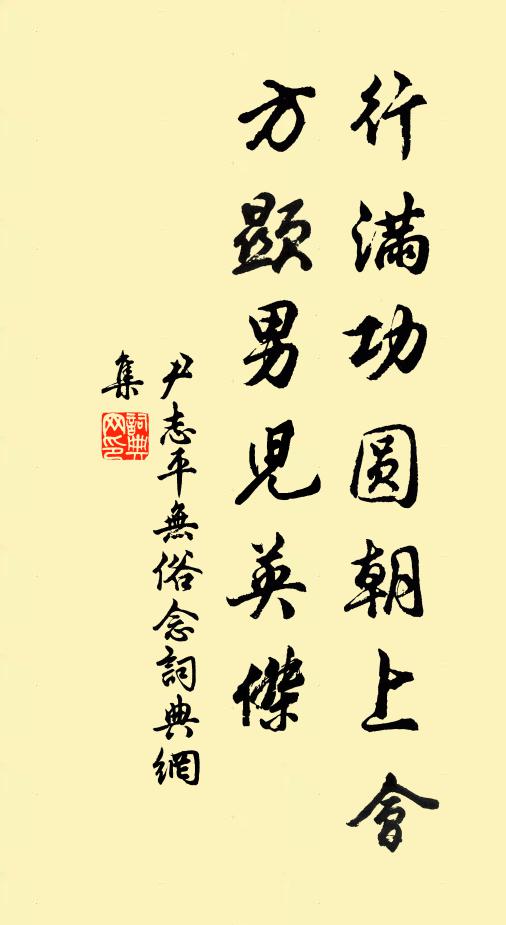 行滿功圓朝上會
方顯男兒英傑
尹志平無俗念詞典網
集
詞典
网印